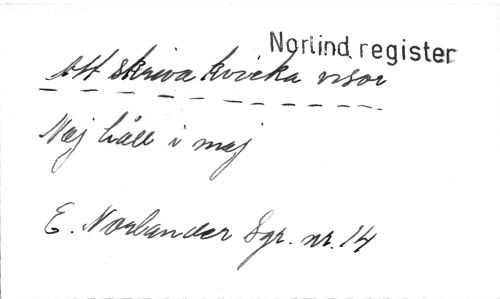 Norlind register
Att skriva kvicka visor
Nej håll i mej
E. Norlander Sgr. nr. 14